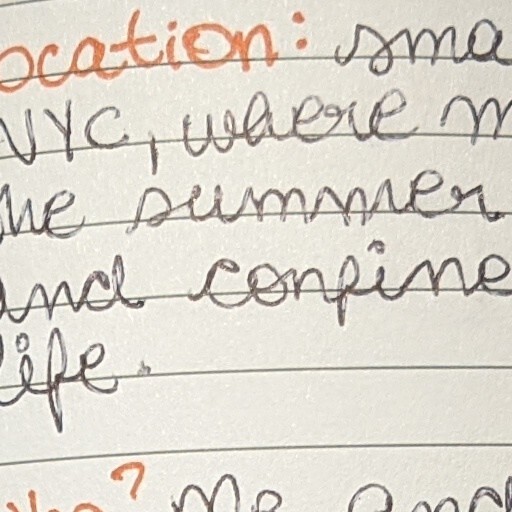 ocation: sma
NYC, where m
he summer
and confine
life.
? Me and